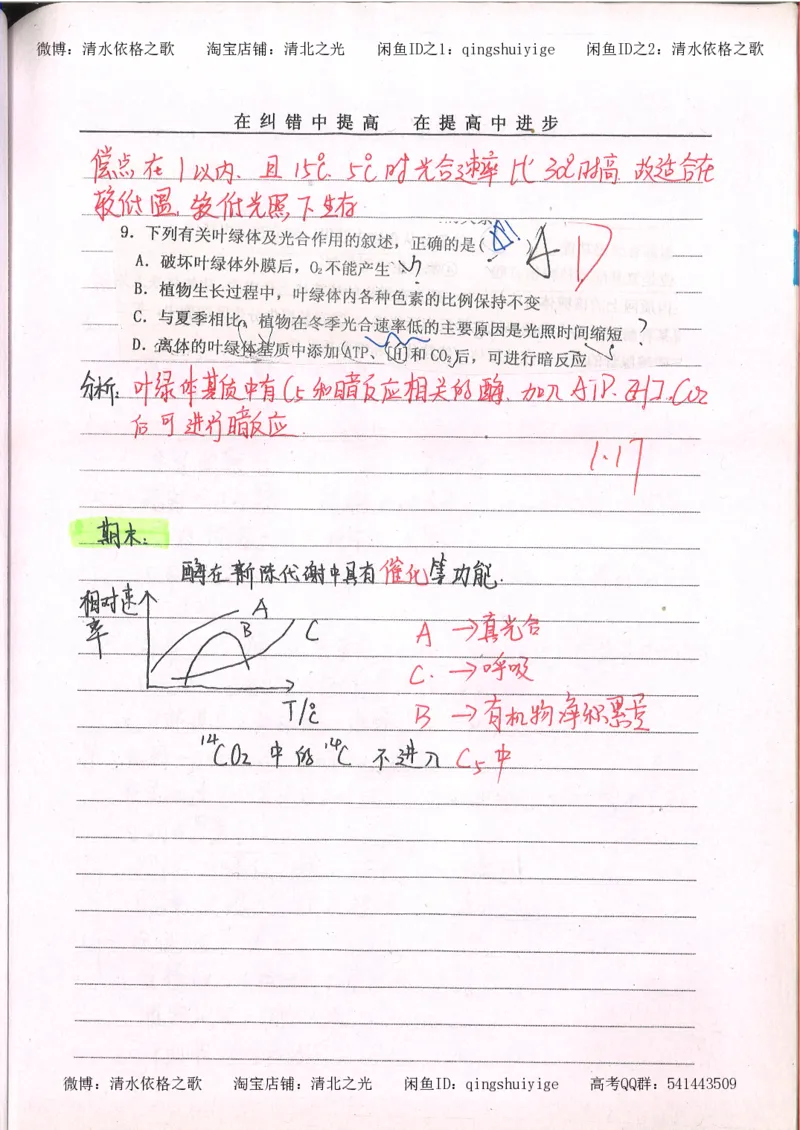 微博：清水依格之歌 淘宝店铺：清北之光 闲鱼ID之1：qingshuiyige 闲鱼ID之2：清水依格之歌
在纠错中提高 在提高中进步
偿点在1以内．且15℃．5℃时光合速率比30℃时高．故适合在
较低温．较低光照下生存
9．下列有关叶绿体及光合作用的叙述，正确的是( ) A D
A．破坏叶绿体外膜后，O₂不能产生 ?
B．植物生长过程中，叶绿体内各种色素的比例保持不变
C．与夏季相比，植物在冬季光合速率低的主要原因是光照时间缩短 ?
D．离体的叶绿体基质中添加(ATP、[H]和CO₂)后，可进行暗反应
分析：叶绿体基质中有C₅和暗反应相关的酶．加入ATP．[H]．CO₂
后可进行暗反应
1.17
期末：
酶在新陈代谢中具有催化等功能．
相对速率
A
B
C
T/℃
A →真光合
C. →呼吸
B →有机物净积累量
¹⁴CO₂中的¹⁴C不进入C₅中
微博：清水依格之歌 淘宝店铺：清北之光 闲鱼ID：qingshuiyige 高考QQ群：541443509